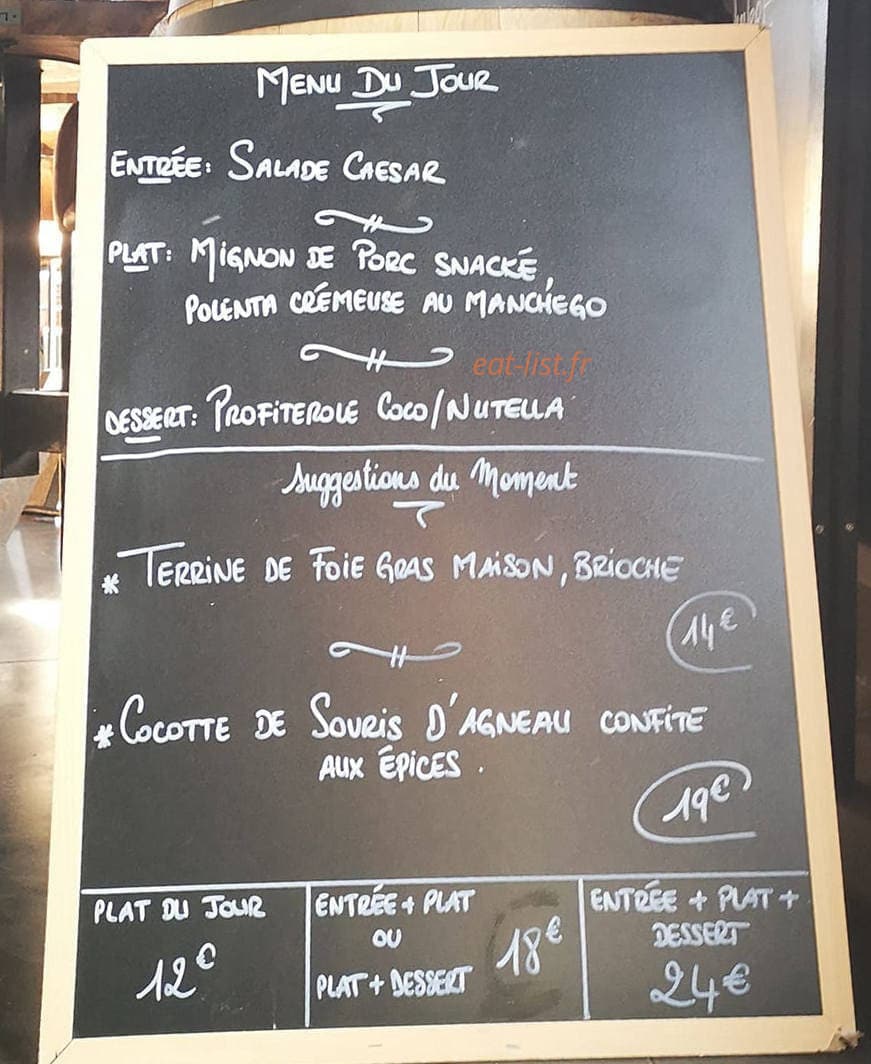 MENU DU JOUR
ENTRÉE: SALADE CAESAR
PLAT: MIGNON DE PORC SNACKÉ,
POLENTA CRÉMEUSE AU MANCHEGO
eat-list.fr
DESSERT: PROFITEROLE COCO/NUTELLA
Suggestions du Moment
* TERRINE DE FOIE GRAS MAISON, BRIOCHE
14€
* COCOTTE DE SOURIS D'AGNEAU CONFITE
AUX ÉPICES.
19€
PLAT DU JOUR
12€
ENTRÉE + PLAT
OU
PLAT + DESSERT
18€
ENTRÉE + PLAT +
DESSERT
24€